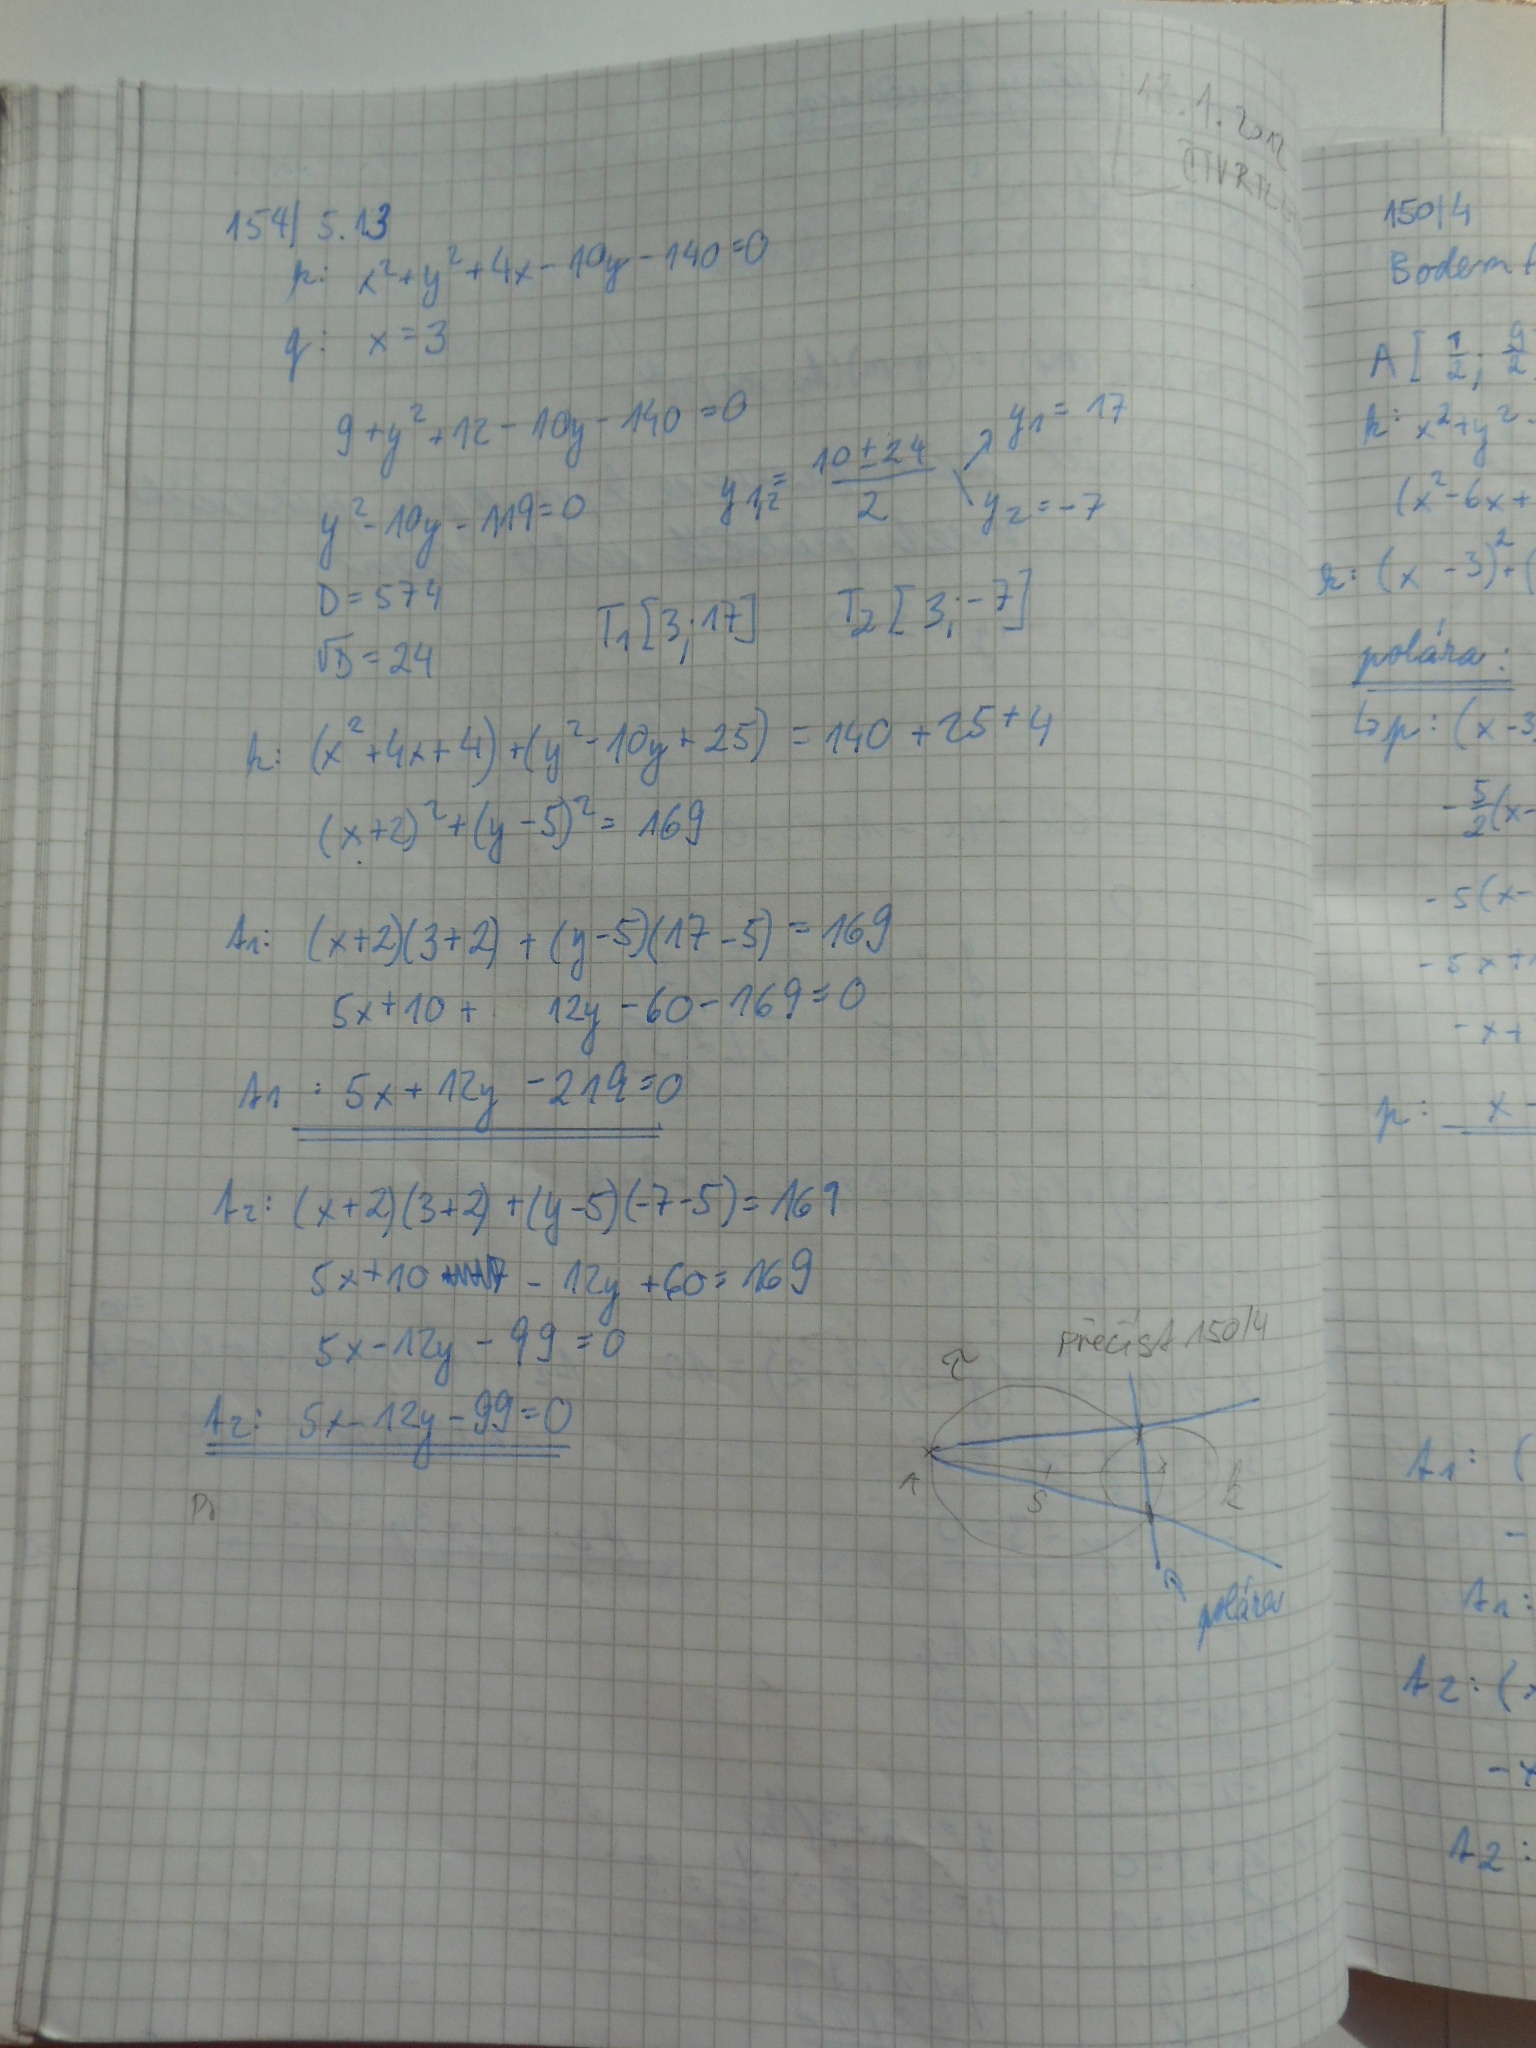 12.1.2012
ČTVRTEK
154/ 5.13
k: x²+y²+4x-10y-140=0
q: x=3
9+y²+12-10y-140=0
y²-10y-119=0
y₁,₂= (10±24)/2
y₁=17
y₂=-7
D=574
√D=24
T₁[3;17] T₂[3;-7]
k: (x²+4x+4)+(y²-10y+25)=140+25+4
(x+2)²+(y-5)²=169
t₁: (x+2)(3+2)+(y-5)(17-5)=169
5x+10+ 12y-60-169=0
t₁: 5x+12y-219=0
t₂: (x+2)(3+2)+(y-5)(-7-5)=169
5x+10 -12y+60=169
5x-12y-99=0
t₂: 5x-12y-99=0
přečíst 150/4
τ
S
k
polára
150/4
Bodem
A[1/2; 9/2
k: x²+y²-
(x²-6x+
k: (x-3)²+(
polára:
↳p: (x-3
-5/2(x-
-5(x-
-5x+
-x+
p: x-
t₁: (
-
t₁:
t₂: (x
-x
t₂: